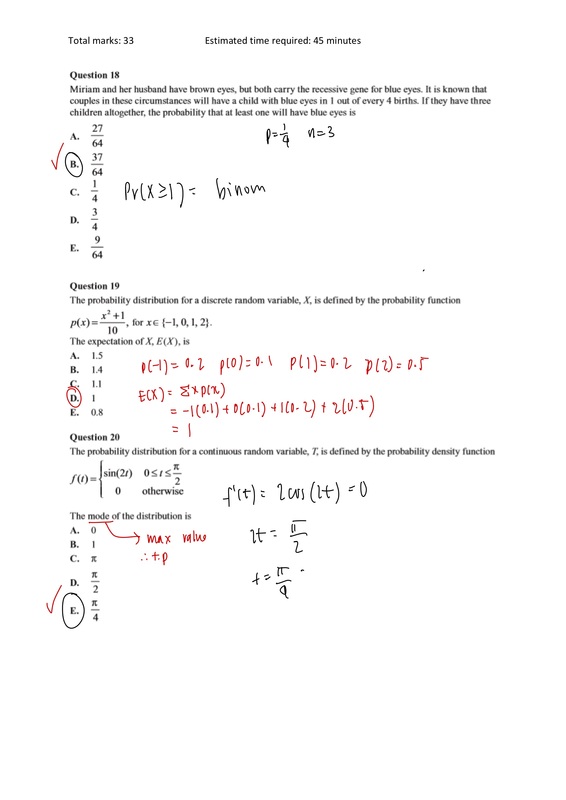 Total marks: 33 Estimated time required: 45 minutes
Question 18
Miriam and her husband have brown eyes, but both carry the recessive gene for blue eyes. It is known that
couples in these circumstances will have a child with blue eyes in 1 out of every 4 births. If they have three
children altogether, the probability that at least one will have blue eyes is
A. 27/64
p=1/4 n=3
B. 37/64
C. 1/4
Pr(X≥1)= binom
D. 3/4
E. 9/64
Question 19
The probability distribution for a discrete random variable, X, is defined by the probability function
p(x)= x²+1/10, for x∈{−1, 0, 1, 2}.
The expectation of X, E(X), is
A. 1.5
B. 1.4
C. 1.1
D. 1
E. 0.8
p(-1)=0.2 p(0)=0.1 p(1)=0.2 p(2)=0.5
E(X)= Σxp(x)
= -1(0.1)+0(0.1)+1(0.2)+2(0.5)
= 1
Question 20
The probability distribution for a continuous random variable, T, is defined by the probability density function
f(t)= { sin(2t) 0≤t≤π/2
0 otherwise
f'(t)= 2cos(2t)=0
2t= π/2
t=π/4
The mode of the distribution is
A. 0
B. 1
C. π
D. π/2
E. π/4
max value
∴ t.p